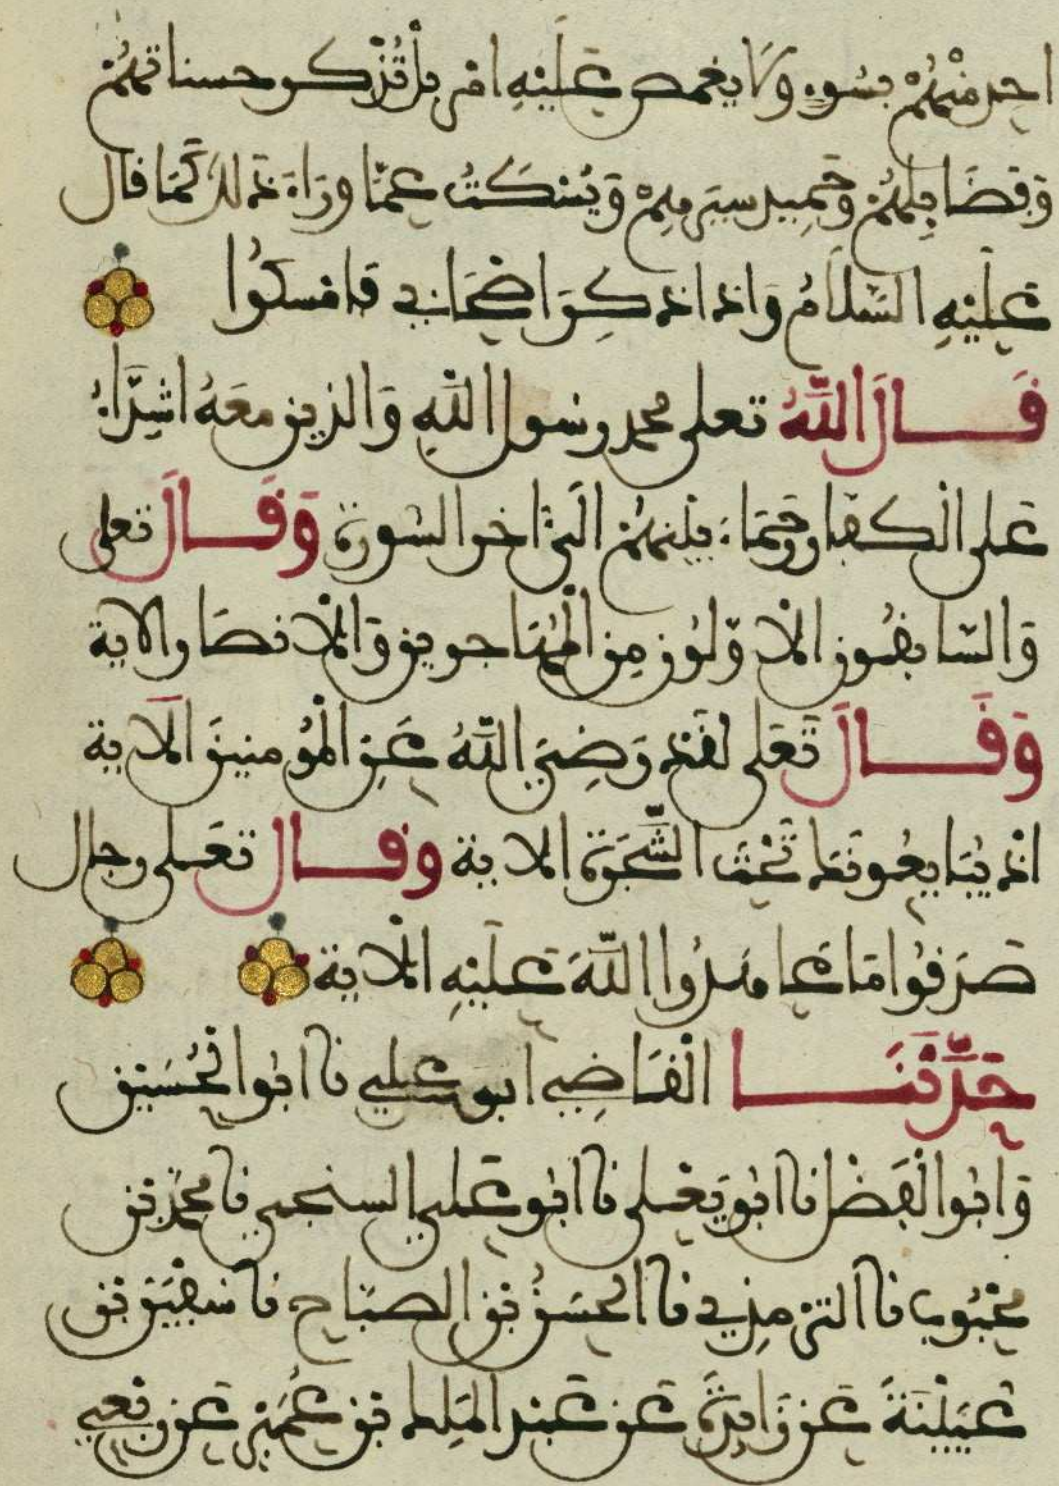 احد منهم بسوء ولا يغمص عليه امر بل تذكر حسناتهم
وفضايلهم وحميد سيرهم ويسكت عما وراء ذلك كما قال
عليه السلام واذا ذكر اصحابي فامسكوا
قال الله تعلى محمد رسول الله والذين معه اشداء
على الكفار رحماء بينهم الى ءاخر السورة وقال تعلى
والسابقون الاولون من المهاجرين والانصار الاية
وقال تعلى لقد رضي الله عن المومنين الاية
اذ يبايعونك تحت الشجرة الاية وقال تعلى رجال
صدقوا ما عاهدوا الله عليه الاية
حدثنا القاضي ابو علي نا ابو الحسين
وابو الفضل نا ابو يعلى نا ابو علي السنجي نا محمد بن
محبوب نا الترمذي نا الحسن بن الصباح نا سفين بن
عيينة عن زايدة عن عبد الملك بن عمير عن ربعي